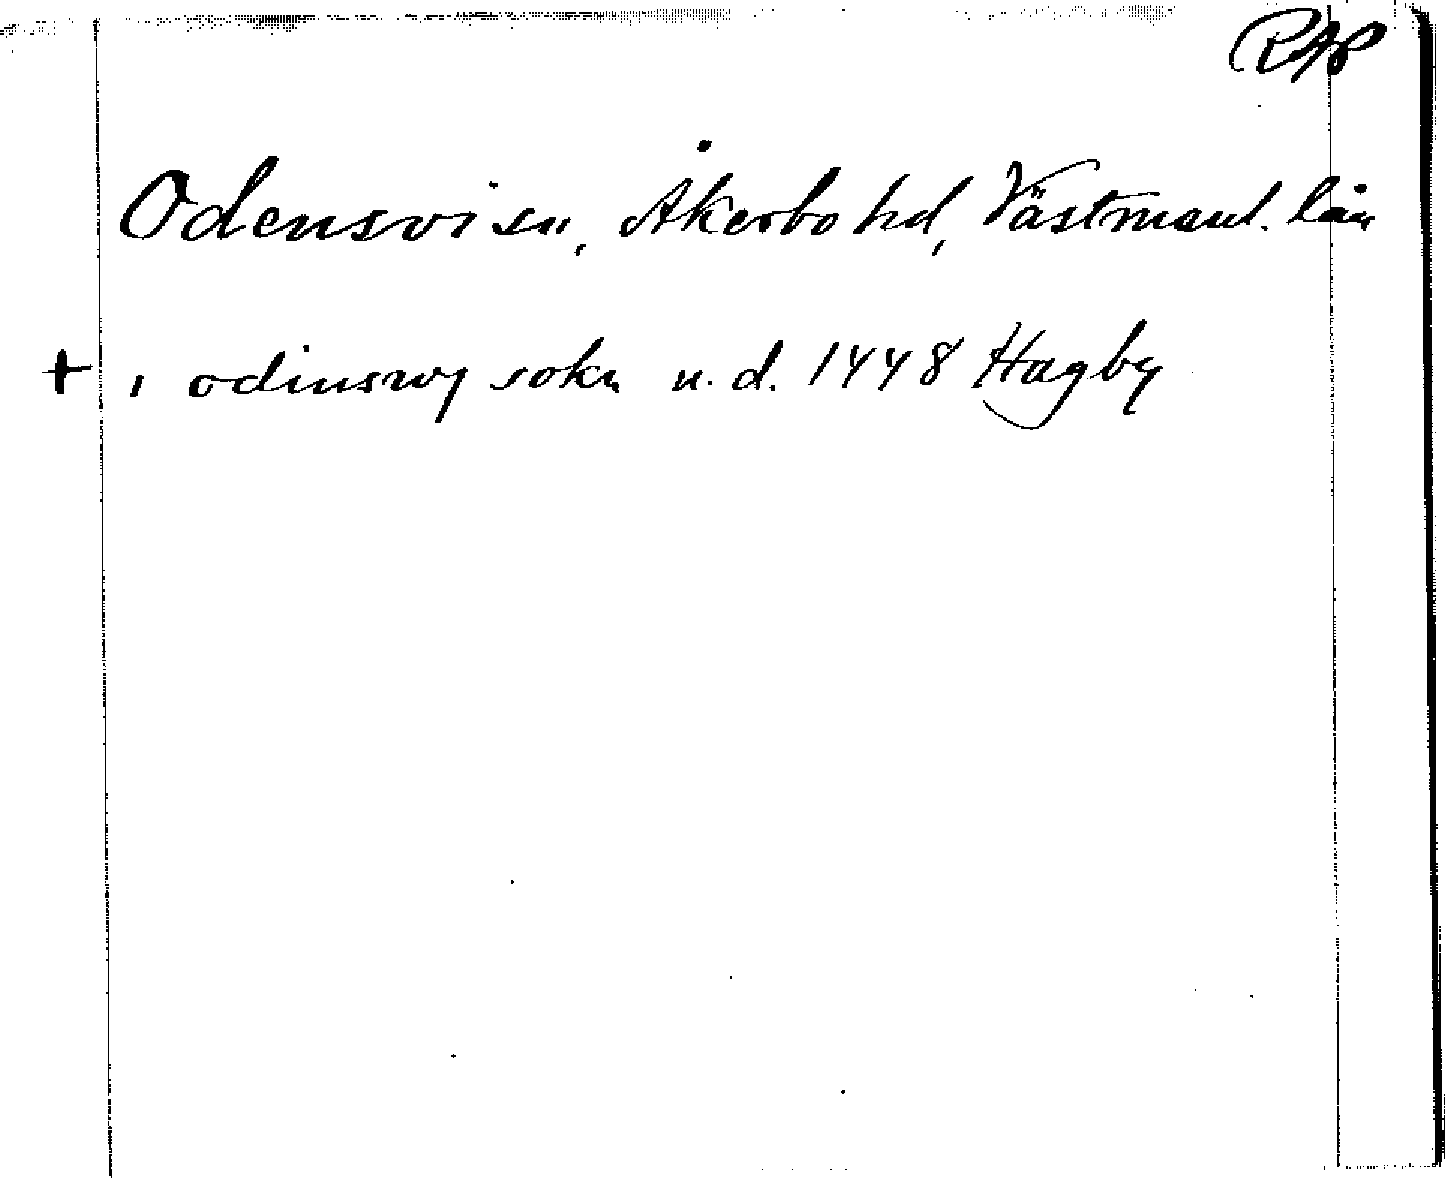 RAP
Odensvi sn, Åkerbo hd, Västmanl. län
+ i odinswy sokn u. d. 1448 Hagby